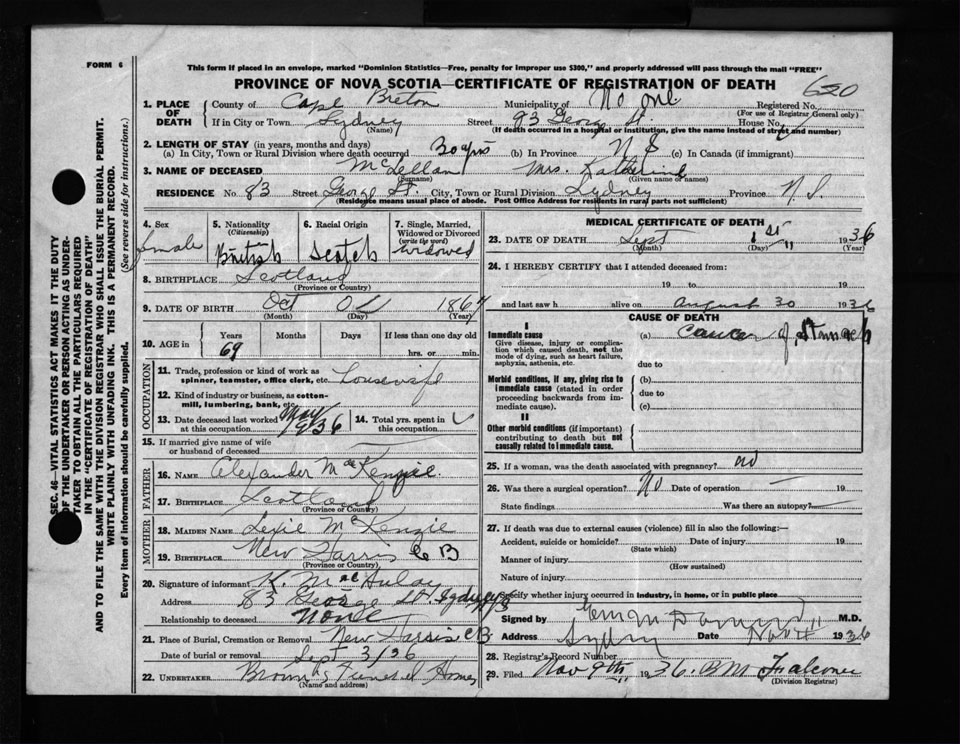 FORM 6
This form if placed in an envelope, marked "Dominion Statistics—Free, penalty for improper use $300," and properly addressed will pass through the mail "FREE"
PROVINCE OF NOVA SCOTIA—CERTIFICATE OF REGISTRATION OF DEATH
620
1. PLACE OF DEATH
County of Cape Breton Municipality of No one Registered No.
(For use of Registrar General only)
If in City or Town Sydney Street 83 George St. House No.
(Name) (If death occurred in a hospital or institution, give the name instead of street and number)
2. LENGTH OF STAY (in years, months and days)
(a) In City, Town or Rural Division where death occurred 30 yrs (b) In Province N S (c) In Canada (if immigrant)
3. NAME OF DECEASED McLellan Mrs. Katherine
(Surname) (Given name or names)
RESIDENCE No. 83 Street George St. City, Town or Rural Division Sydney Province N.S.
(Residence means usual place of abode. Post Office Address for residents in rural parts not sufficient)
4. Sex
female
5. Nationality
(Citizenship)
British
6. Racial Origin
Scotch
7. Single, Married, Widowed or Divorced
(write the word)
Widowed
8. BIRTHPLACE Scotland
(Province or Country)
9. DATE OF BIRTH Oct 1867
(Month) (Day) (Year)
10. AGE in
Years Months Days If less than one day old
69 hrs. or min.
OCCUPATION
11. Trade, profession or kind of work as spinner, teamster, office clerk, etc. housewife
12. Kind of industry or business, as cotton-mill, lumbering, bank, etc.
13. Date deceased last worked at this occupation May 1936
14. Total yrs. spent in this occupation
15. If married give name of wife or husband of deceased
FATHER
16. NAME Alexander McKenzie
17. BIRTHPLACE Scotland
(Province or Country)
MOTHER
18. MAIDEN NAME Lexie McKenzie
19. BIRTHPLACE New Harris C B
(Province or Country)
20. Signature of informant K. MacAulay
Address 83 George St. Sydney NS
Relationship to deceased None
21. Place of Burial, Cremation or Removal New Harris CB
Date of burial or removal Sept 3/36
22. UNDERTAKER Browns Funeral Home
(Name and address)
MEDICAL CERTIFICATE OF DEATH
23. DATE OF DEATH Sept 1st 1936
(Month) (Day) (Year)
24. I HEREBY CERTIFY that I attended deceased from:
19 to 19
and last saw h alive on August 30 1936
CAUSE OF DEATH
I
Immediate cause
Give disease, injury or complication which caused death, not the mode of dying, such as heart failure, asphyxia, asthenia, etc.
(a) Cancer of stomach
due to
Morbid conditions, if any, giving rise to immediate cause (stated in order proceeding backwards from immediate cause).
(b)
due to
(c)
II
Other morbid conditions (if important) contributing to death but not causally related to immediate cause.
25. If a woman, was the death associated with pregnancy? no
26. Was there a surgical operation? No Date of operation 19
State findings Was there an autopsy?
27. If death was due to external causes (violence) fill in also the following:—
Accident, suicide or homicide? Date of injury 19
(State which)
Manner of injury
(How sustained)
Nature of injury
Specify whether injury occurred in industry, in home, or in public place
Signed by M.D.
Address Sydney Date 1936
28. Registrar's Record Number
29. Filed Nov 9th 1936. B M Falconer
(Division Registrar)
SEC. 46—VITAL STATISTICS ACT MAKES IT THE DUTY
OF THE UNDERTAKER OR PERSON ACTING AS UNDERTAKER TO OBTAIN ALL THE PARTICULARS REQUIRED
IN THE "CERTIFICATE OF REGISTRATION OF DEATH"
AND TO FILE THE SAME WITH THE DIVISION REGISTRAR WHO SHALL ISSUE THE BURIAL PERMIT.
WRITE PLAINLY WITH UNFADING INK. THIS IS A PERMANENT RECORD.
Every item of information should be carefully supplied.
(See reverse side for instructions.)